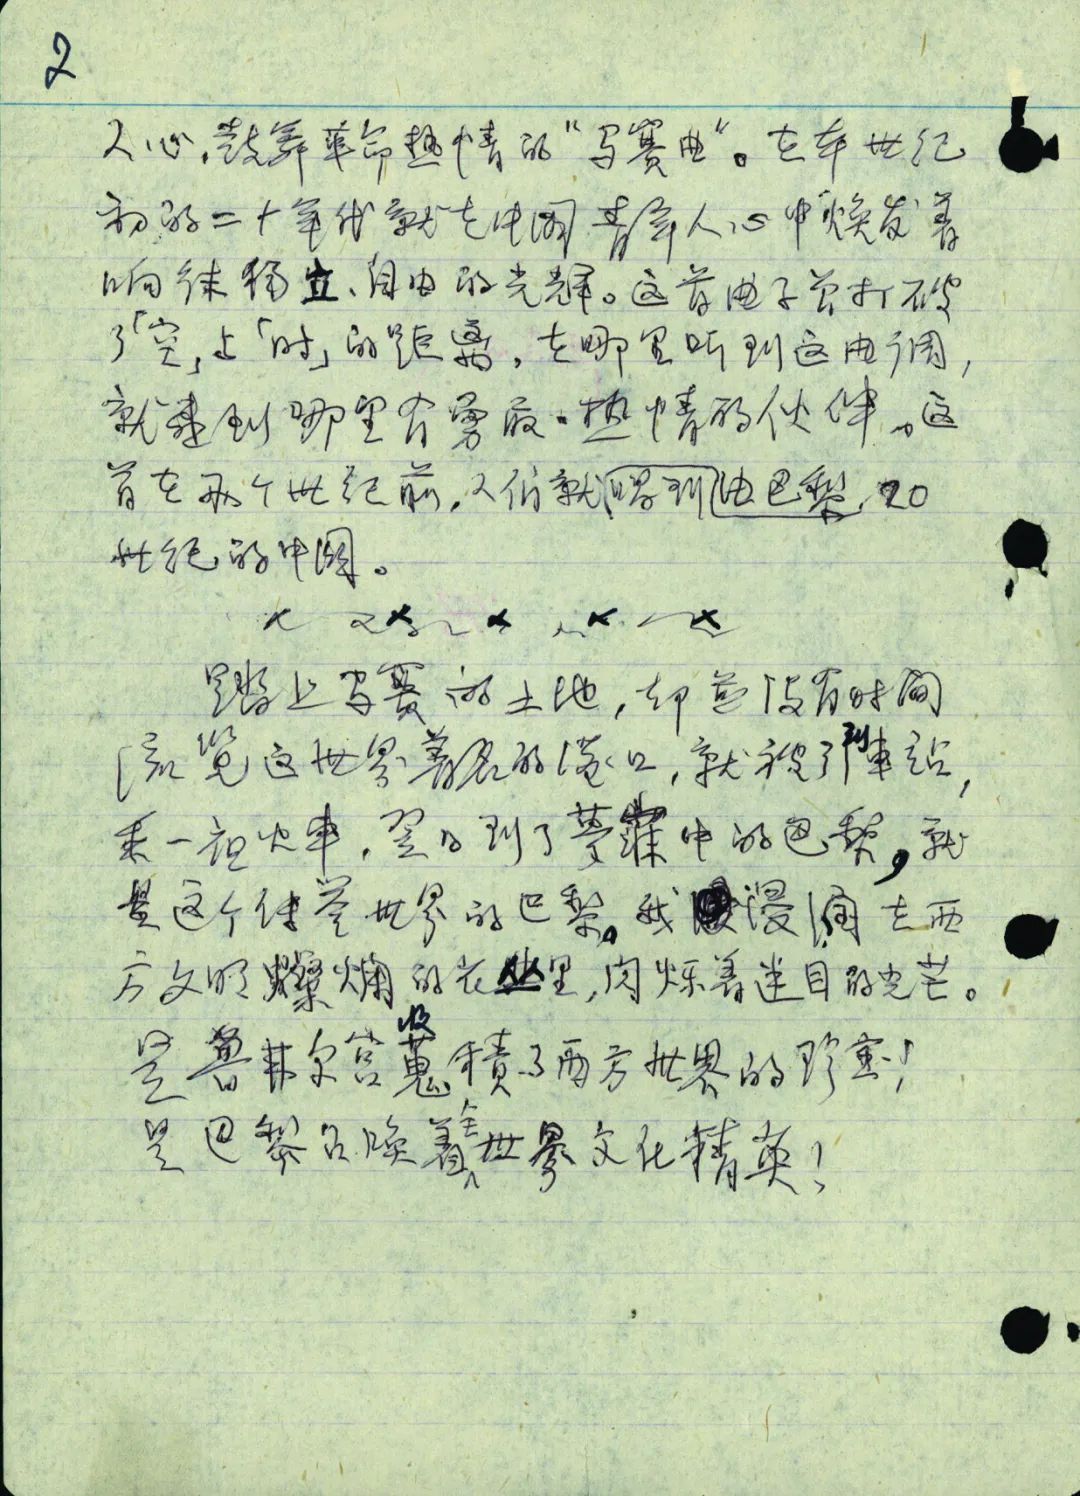 2
人心，鼓舞革命热情的“马赛曲”。在本世纪
初的二十年代就在中国青年人心中焕发着
响往独立、自由的光辉。这首曲子曾打破
了「空」与「时」的距离，在哪里听到这曲调，
就走到哪里有勇敢、热情的伙伴。这
首在两个世纪前，人们就唱到由巴黎，20
世纪的中国。
踏上马赛的土地，却并没有时间
流览这世界著名的港口，就被引到車站，
乘一夜火車，翌日到了梦寐中的巴黎，就
是这个佳誉世界的巴黎。我浸润在西
方文明燦爛的花丛里，闪烁着迷目的光芒。
是鲁弗尔宫收蒐積了西方世界的珍宝！
是巴黎召唤着全世界文化精英！